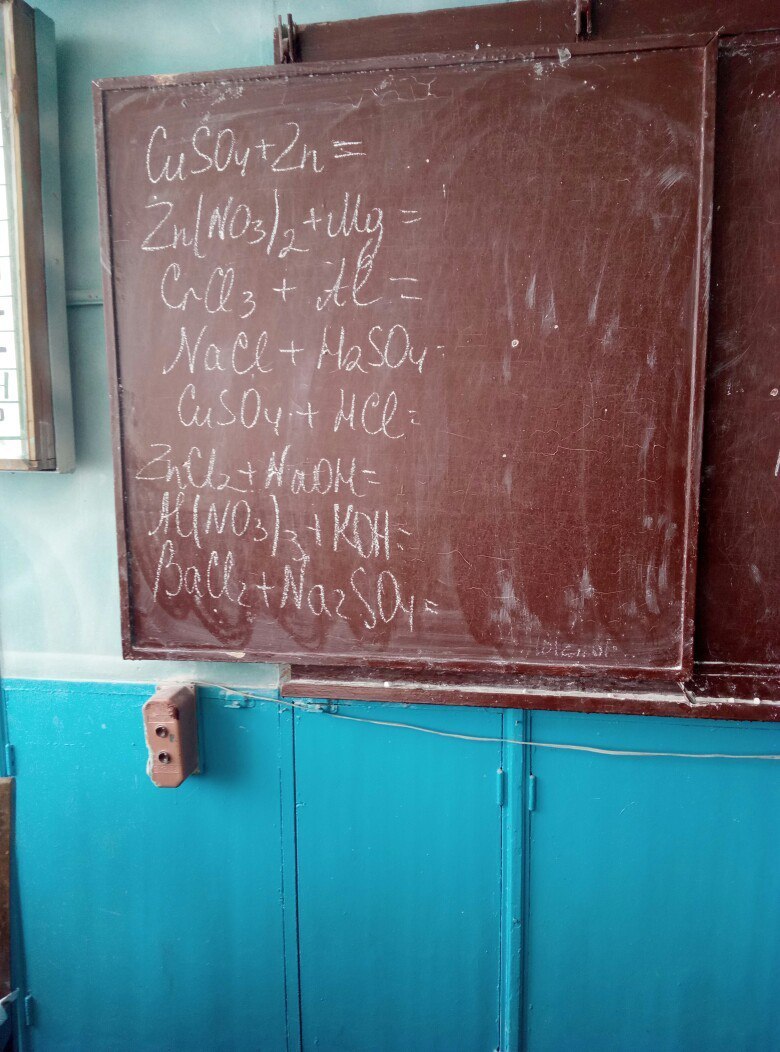 CuSO4+Zn=
Zn(NO3)2+Mg=
CrCl3 + Al =
NaCl + H2SO4=
CuSO4 + HCl=
ZnCl2+NaOH=
Al(NO3)3+KOH=
BaCl2+Na2SO4=